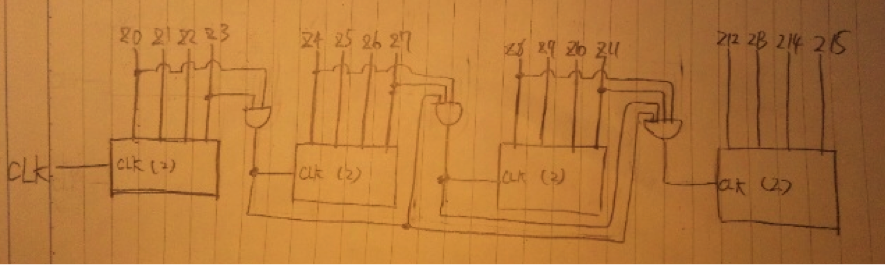 Z0 Z1 Z2 Z3 Z4 Z5 Z6 Z7 Z8 Z9 Z10 Z11 Z12 Z13 Z14 Z15
CLK CLK (2) CLK (2) CLK (2) CLK (2)